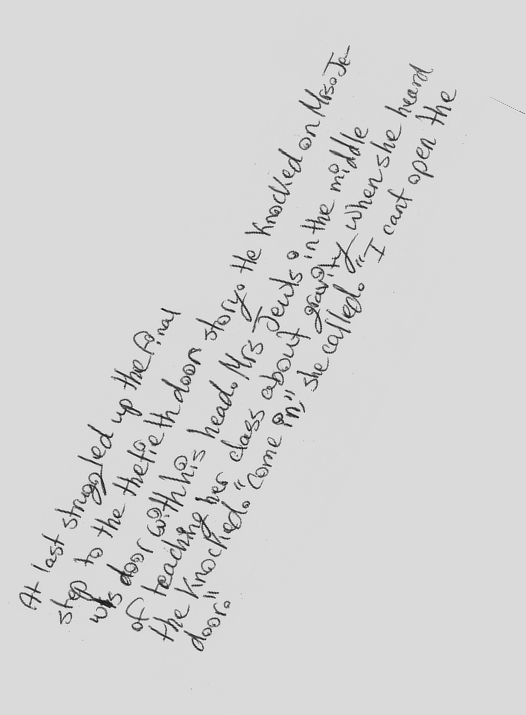 At last struggled up the final
step to the thetieth door story. He knocked on Mrs. Je-
wls door with his head. Mrs Jewls o in the middle
of teaching her class about gravity when she heard
the knocked. "Come in," she called. "I cant open the
door."